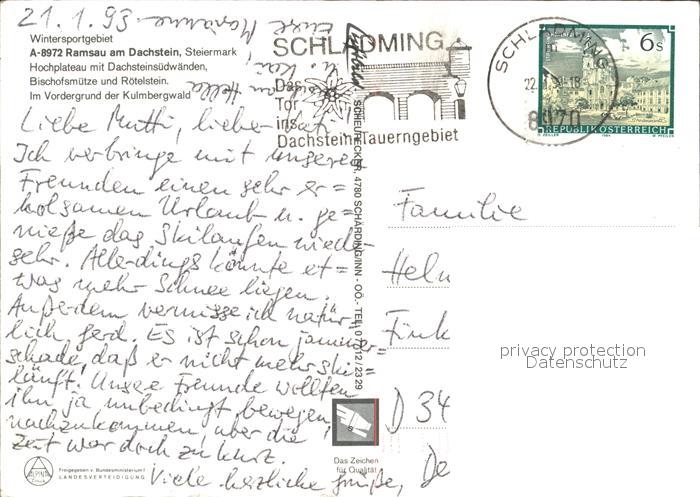 21.1.93
Wintersportgebiet
A-8972 Ramsau am Dachstein, Steiermark
Hochplateau mit Dachsteinsüdwänden,
Bischofsmütze und Rötelstein.
Im Vordergrund der Kulmbergwald
Liebe Mutti, lieber Vati,
Ich verbringe mit unseren
Freunden einen sehr er=
holsamen Urlaub u. ge=
nieße das Skilaufen wieder
sehr. Allerdings könnte et=
was mehr Schnee liegen.
Außerdem vermisse ich natür=
lich Gerd. Es ist schon jammer=
schade, daß er nicht mehr Ski-
läuft! Unsere Freunde wollten
ihn ja unbedingt bewegen,
nachzukommen aber die
Zeit war doch zu kurz.
Viele herzliche Grüße,
Eure Marianne
Freigegeben v. Bundesministerium f.
LANDESVERTEIDIGUNG
ALPINE
SCHLADMING
Das
Tor
ins
Dachstein-Tauerngebiet
SCHLADMING
22.
-18
8970
6s
REPUBLIK ÖSTERREICH
4780 SCHÄRDING/INN - OÖ. - TEL. 0 77 12 / 23 29
Familie
Helm
Fink
D 34
De
Das Zeichen
für Qualität
privacy protection
Datenschutz